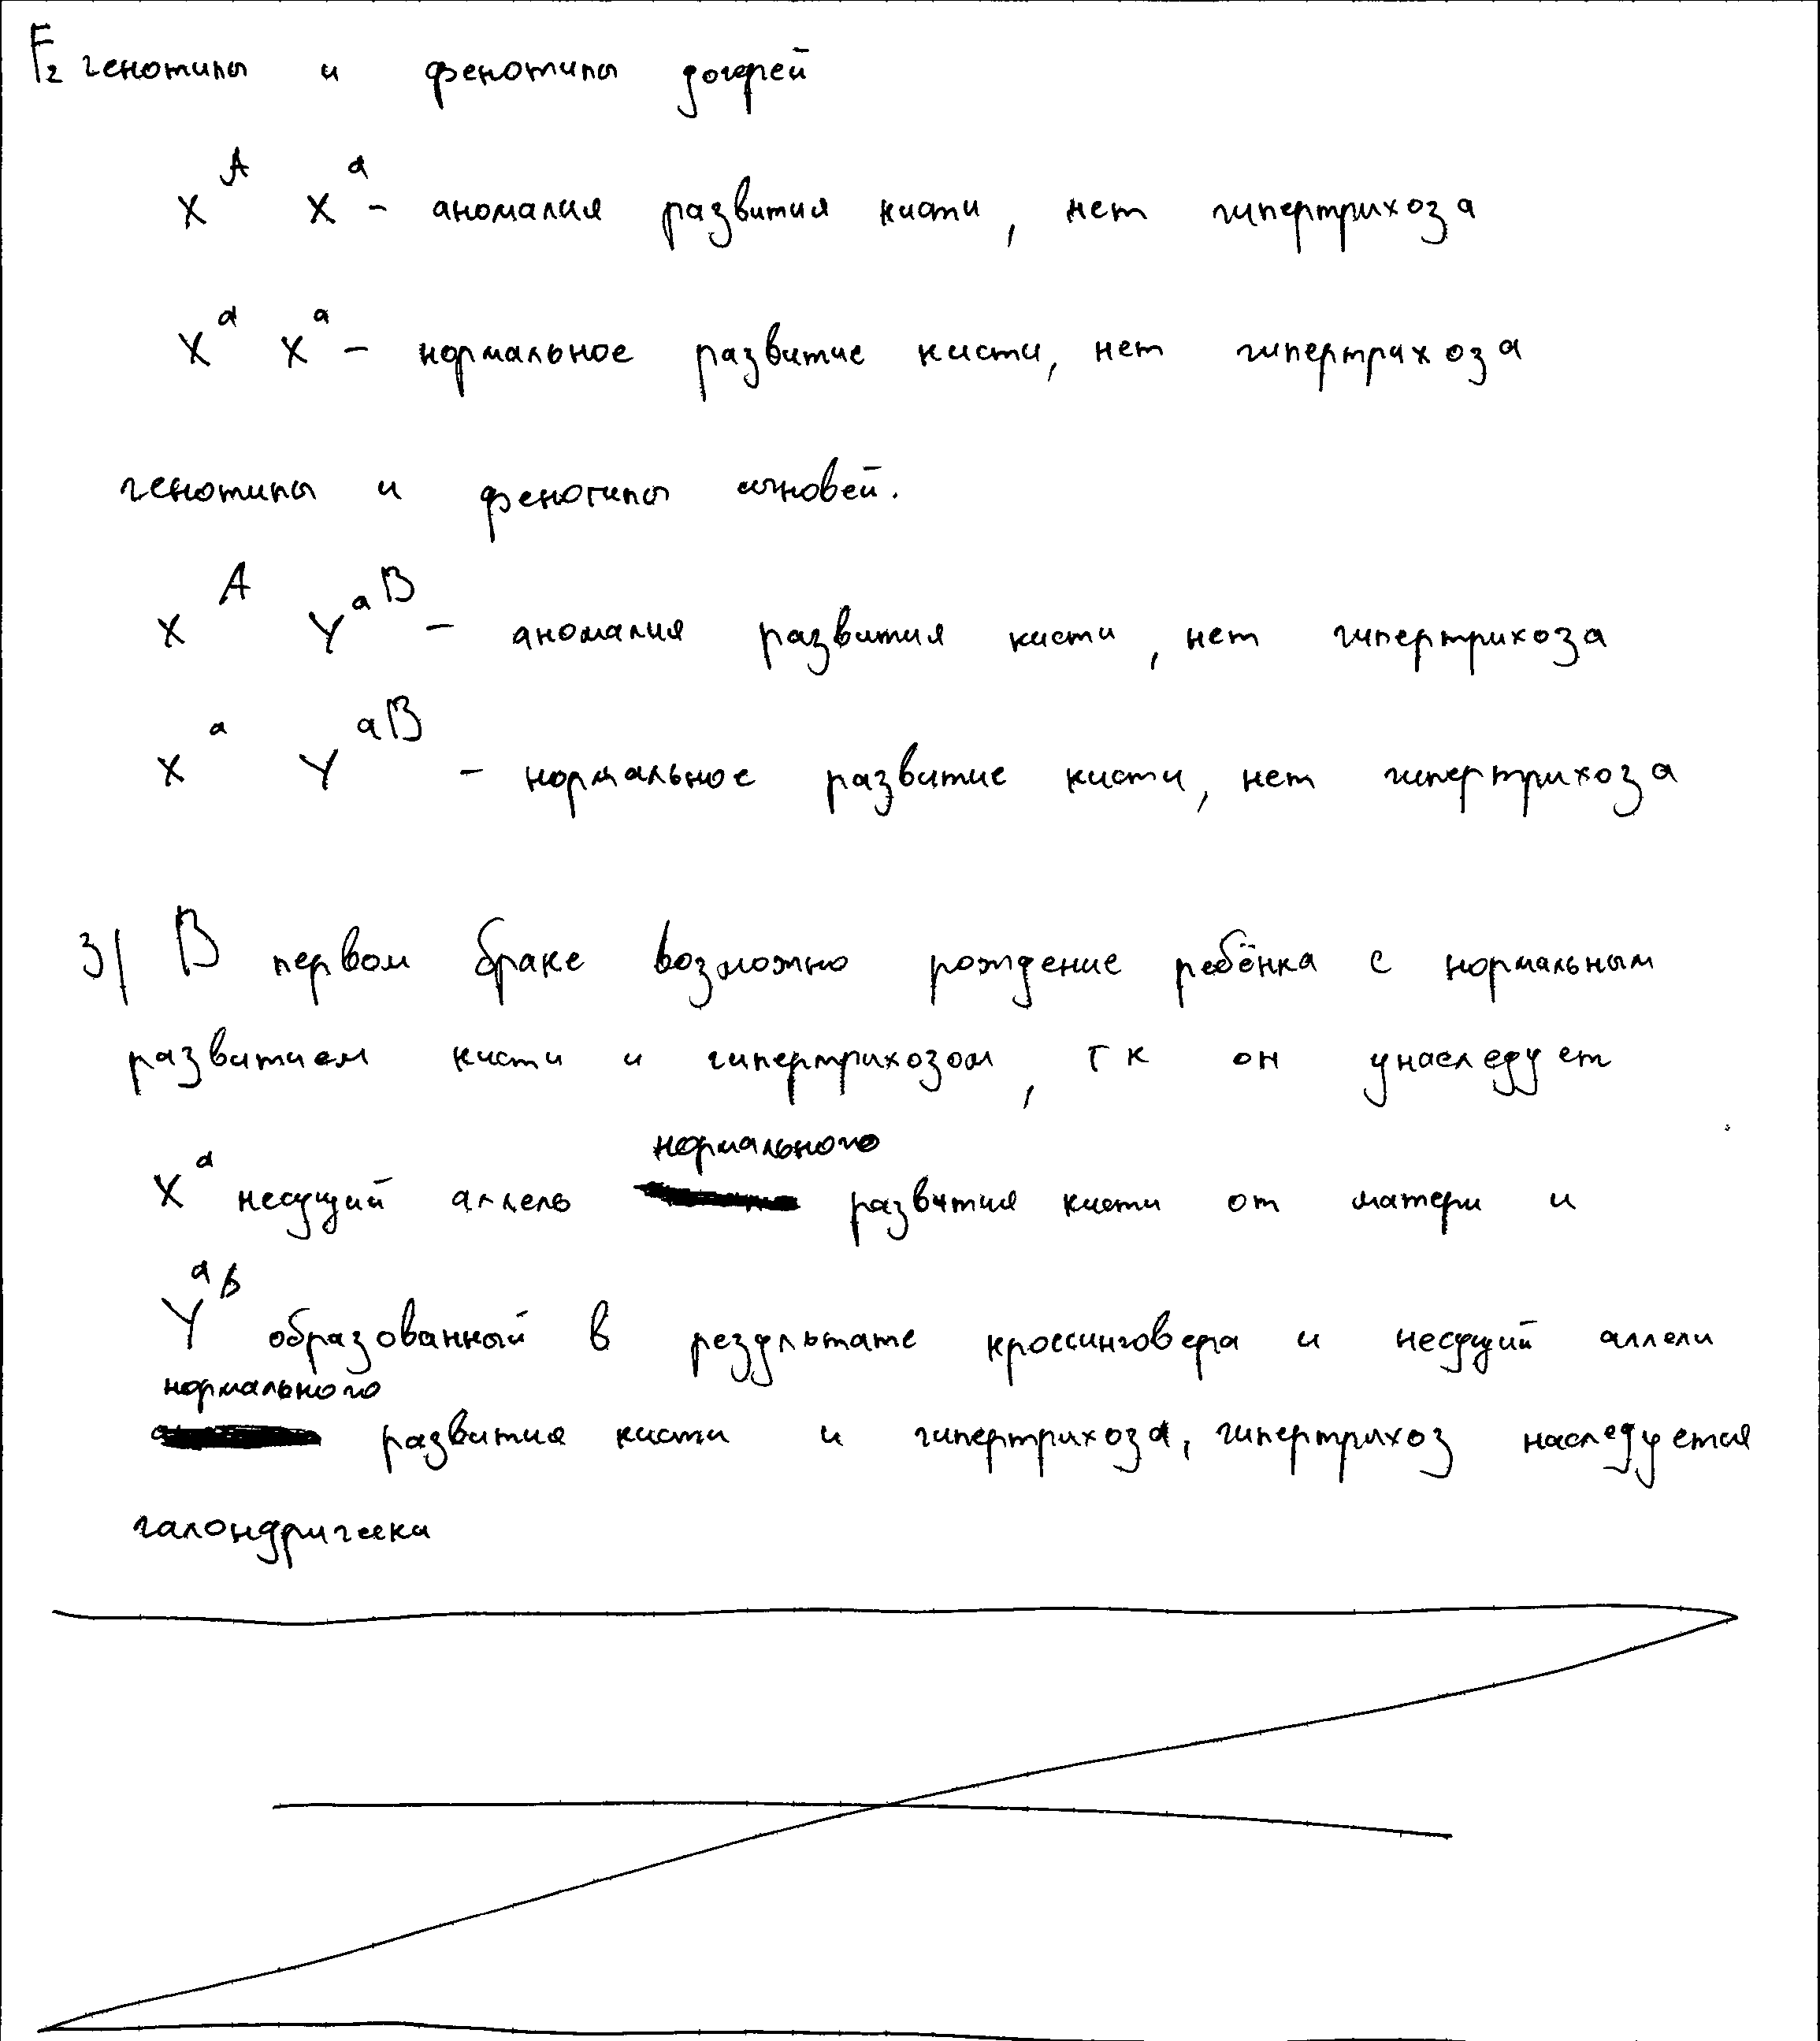 F₂ генотипы и фенотипы дочерей
X^A X^a – аномалия развития кисти, нет гипертрихоза
X^a X^a – нормальное развитие кисти, нет гипертрихоза
генотипы и фенотипы сыновей.
X^A Y^aB – аномалия развития кисти, нет гипертрихоза
X^a Y^aB – нормальное развитие кисти, нет гипертрихоза
3) В первом браке возможно рождение ребёнка с нормальным
развитием кисти и гипертрихозом, тк он унаследует
X^a несущий аллель нормального развития кисти от матери и
Y^ab образованный в результате кроссинговера и несущий аллели
нормального развития кисти и гипертрихоза, гипертрихоз наследуется
галондрически